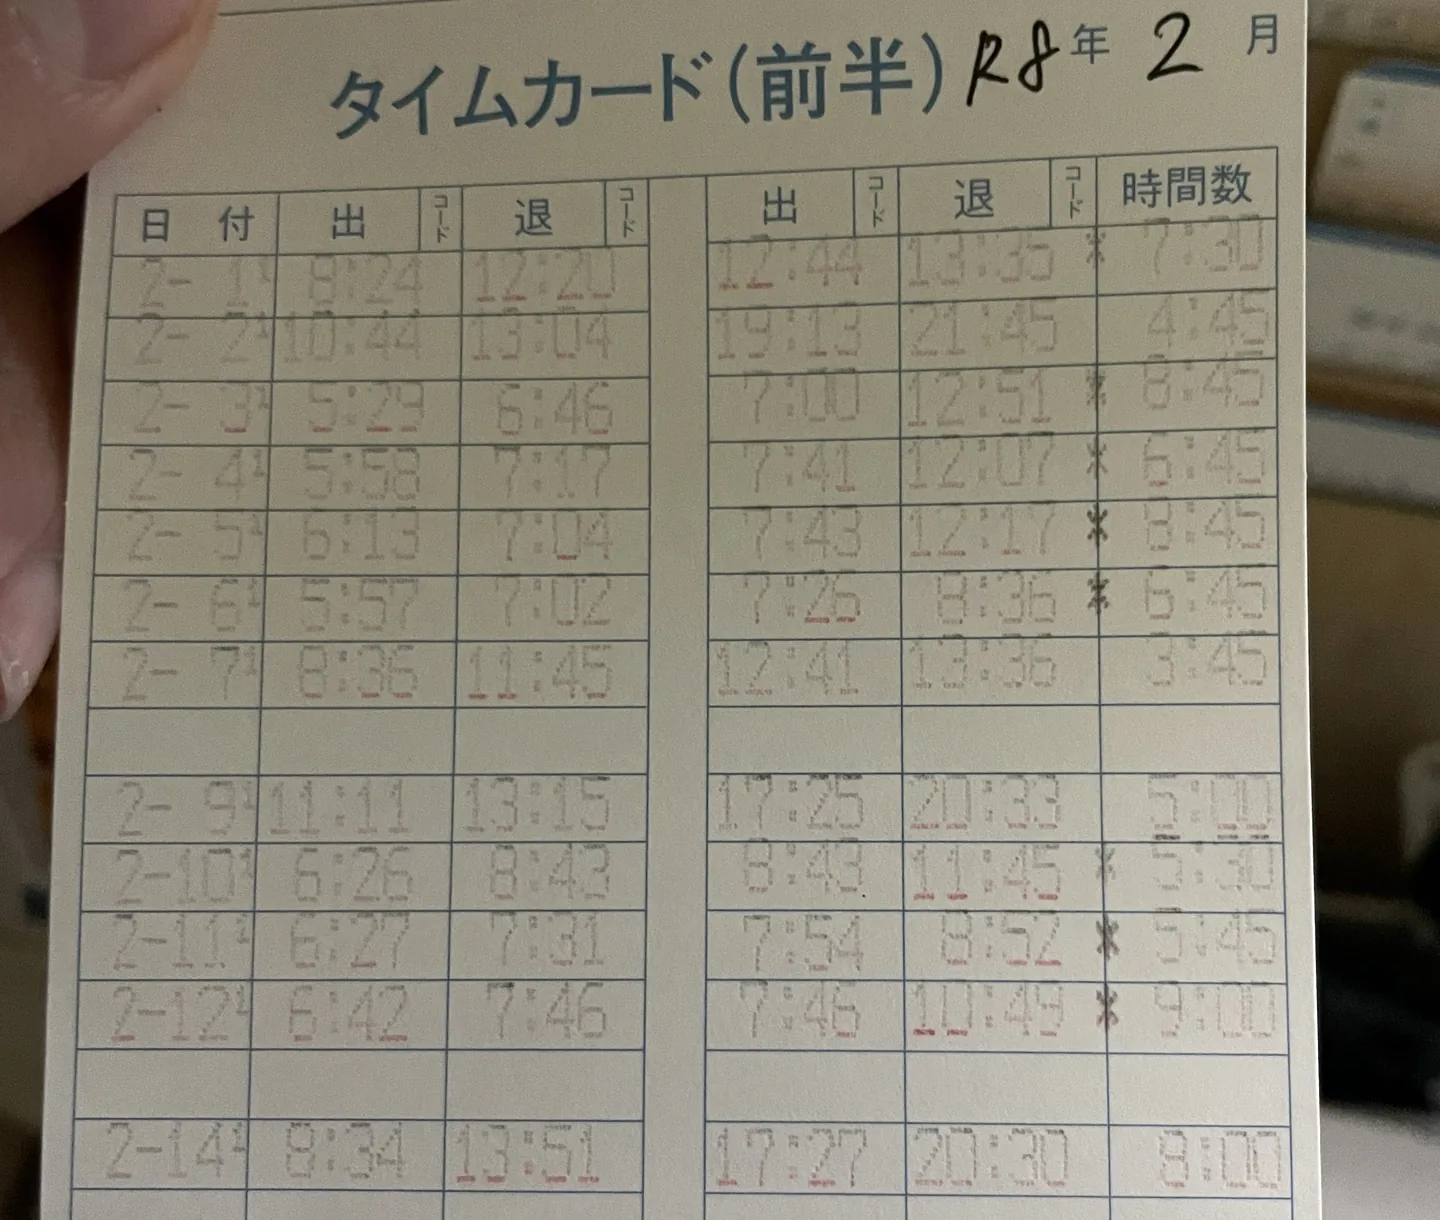 タイムカード(前半) R8年 2月
日付 出 コード 退 コード 出 コード 退 コード 時間数
2- 1 8:24 12:20 12:44 13:35 * 7:30
2- 2 10:44 13:04 19:13 21:45 4:45
2- 3 5:29 6:46 7:00 12:51 * 8:45
2- 4 5:58 7:17 7:41 12:07 * 6:45
2- 5 6:13 7:04 7:43 12:17 * 8:45
2- 6 5:57 7:02 7:26 8:36 * 6:45
2- 7 8:36 11:45 12:41 13:36 3:45
2- 9 11:11 13:15 17:25 20:33 5:00
2-10 6:26 8:43 8:43 11:45 * 5:30
2-11 6:27 7:31 7:54 8:52 * 5:45
2-12 6:42 7:46 7:46 10:49 * 9:00
2-14 8:34 13:51 17:27 20:30 8:00